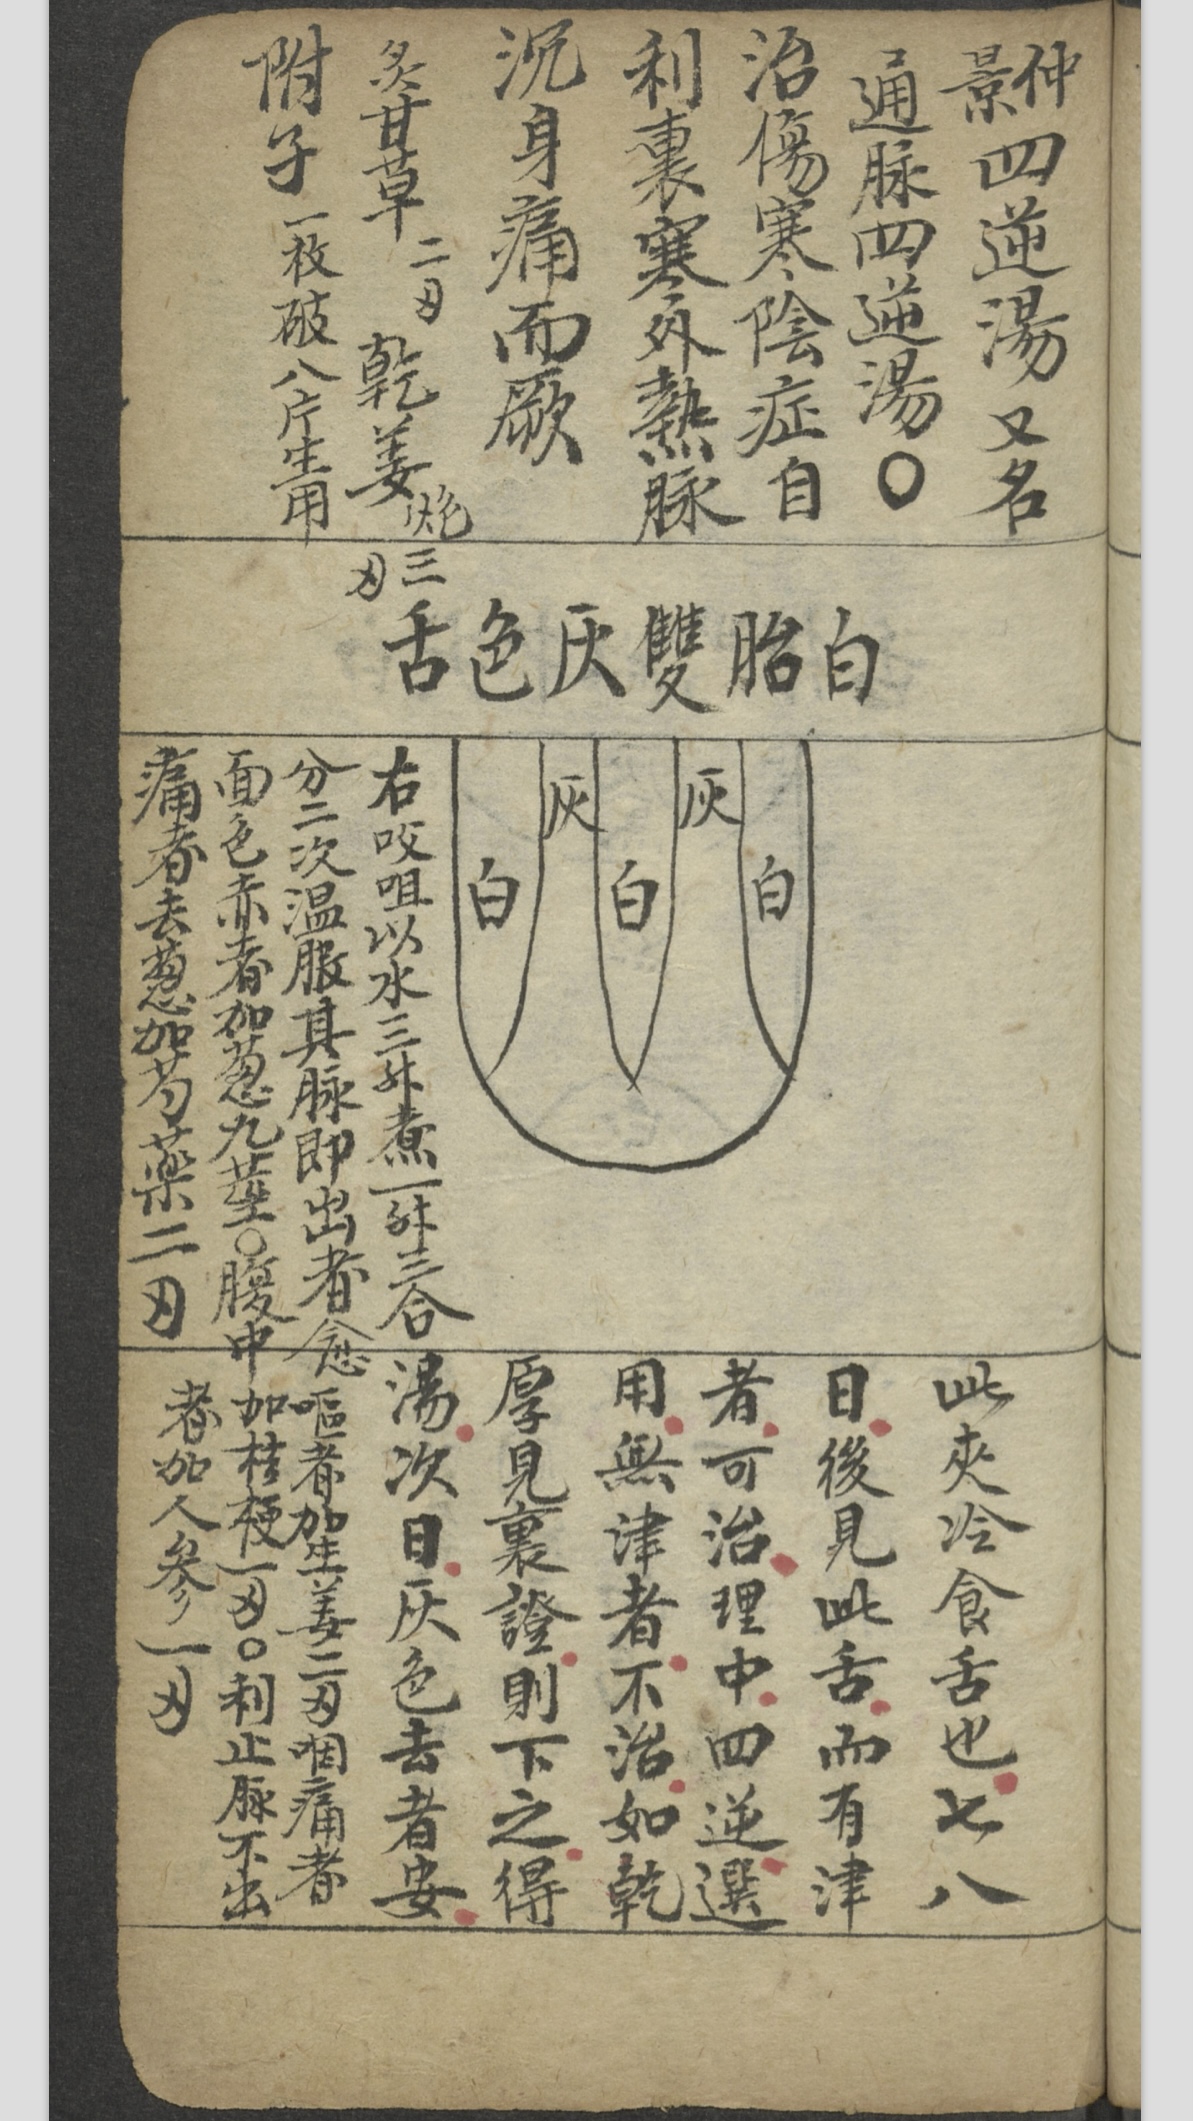 仲景四逆湯又名
通脉四逆湯〇
治傷寒陰症自
利裏寒外熱脉
沉身痛而厥
炙甘草二刄 乾姜炮三刄
附子一枚破八片生用
白胎雙灰色舌
灰 灰
白 白 白
右咬咀以水三升煮一升三合
分二次温服其脉即出者愈
面色赤者加葱九莖〇腹中
痛者去葱加芍藥二刄
嘔者加生姜二刄咽痛者
加桂梗一刄〇利止脉不出
者加人參一刄
此夾冷食舌也七八
日後見此舌而有津
者可治理中四逆選
用無津者不治如乾
厚見裏證則下之得
湯次日灰色去者安